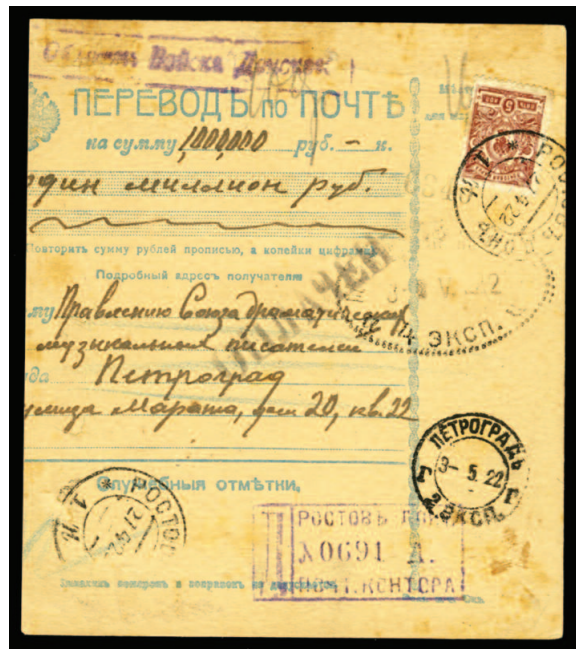 Область Войска Донского
ПЕРЕВОДЪ по ПОЧТѢ
на сумму 1,000,000 руб. — к.
один миллион руб.
Повторить сумму рублей прописью, а копейки цифрами
Подробный адресъ получателя
му Правлению Союза драматических
музыкальных писателей
да Петроград
улица Марата, дом 20, кв. 22
ОПЛАЧЕН
5
РОСТОВЪ ДОНЪ
ЭКСП.
ПЕТРОГРАДЪ
3- 5. 22
Г 2 ЭКСП. Г
Служебныя отмѣтки.
РОСТОВ
27 4 22
РОСТОВЪ ДОНЪ
№0691 Д.
ПОЧТ. КОНТОРА